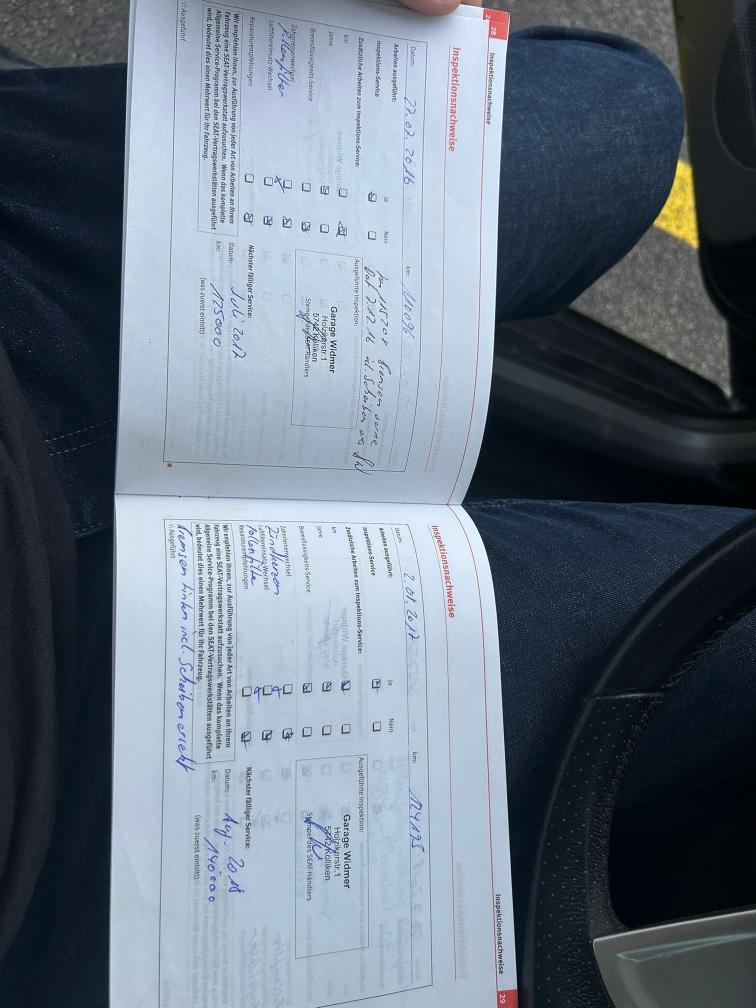 28
Inspektionsnachweise
Inspektionsnachweise
Datum: 22.02.2016 km: 110096
Arbeiten ausgeführt: Ja Nein
Inspektions-Service
Ausgeführte Inspektion:
Zusätzliche Arbeiten zum Inspektions-Service:
km
Jahre
Bremsflüssigkeits-Service
Zahnriemenwechsel
Pollenfilter
Luftfiltereinsatz Wechsel
Reparaturempfehlungen
Bremsen vorne
Dat 7.12.16 inkl. Scheiben
Garage Widmer
Holzikerstr. 1
5742 Kölliken
Stempel des SEAT-Händlers
Wir empfehlen Ihnen, zur Ausführung von jeder Art von Arbeiten an Ihrem
Fahrzeug eine SEAT-Vertragswerkstatt aufzusuchen. Wenn das komplette
Allgemeine Service-Programm bei den SEAT-Vertragswerkstätten ausgeführt
wird, bedeutet dies einen Mehrwert für Ihr Fahrzeug.
Nächster fälliger Service:
Datum: Juli 2017
km: 125000
(was zuerst eintritt)
Ausgeführt
29
Inspektionsnachweise
Inspektionsnachweise
Datum: 2.01.2017 km: 124175
Arbeiten ausgeführt: Ja Nein
Inspektions-Service
Ausgeführte Inspektion:
Zusätzliche Arbeiten zum Inspektions-Service:
km
Jahre
Bremsflüssigkeits-Service
Zahnriemenwechsel
Zündkerzen
Luftfiltereinsatz Wechsel
Pollenfilter
Reparaturempfehlungen
Garage Widmer
Holzikerstr. 1
5742 Kölliken
Stempel des SEAT-Händlers
Wir empfehlen Ihnen, zur Ausführung von jeder Art von Arbeiten an Ihrem
Fahrzeug eine SEAT-Vertragswerkstatt aufzusuchen. Wenn das komplette
Allgemeine Service-Programm bei den SEAT-Vertragswerkstätten ausgeführt
wird, bedeutet dies einen Mehrwert für Ihr Fahrzeug.
Nächster fälliger Service:
Datum: Aug. 2018
km: 140000
(was zuerst eintritt)
Ausgeführt
Bremsen hinten incl. Scheiben ersetzt